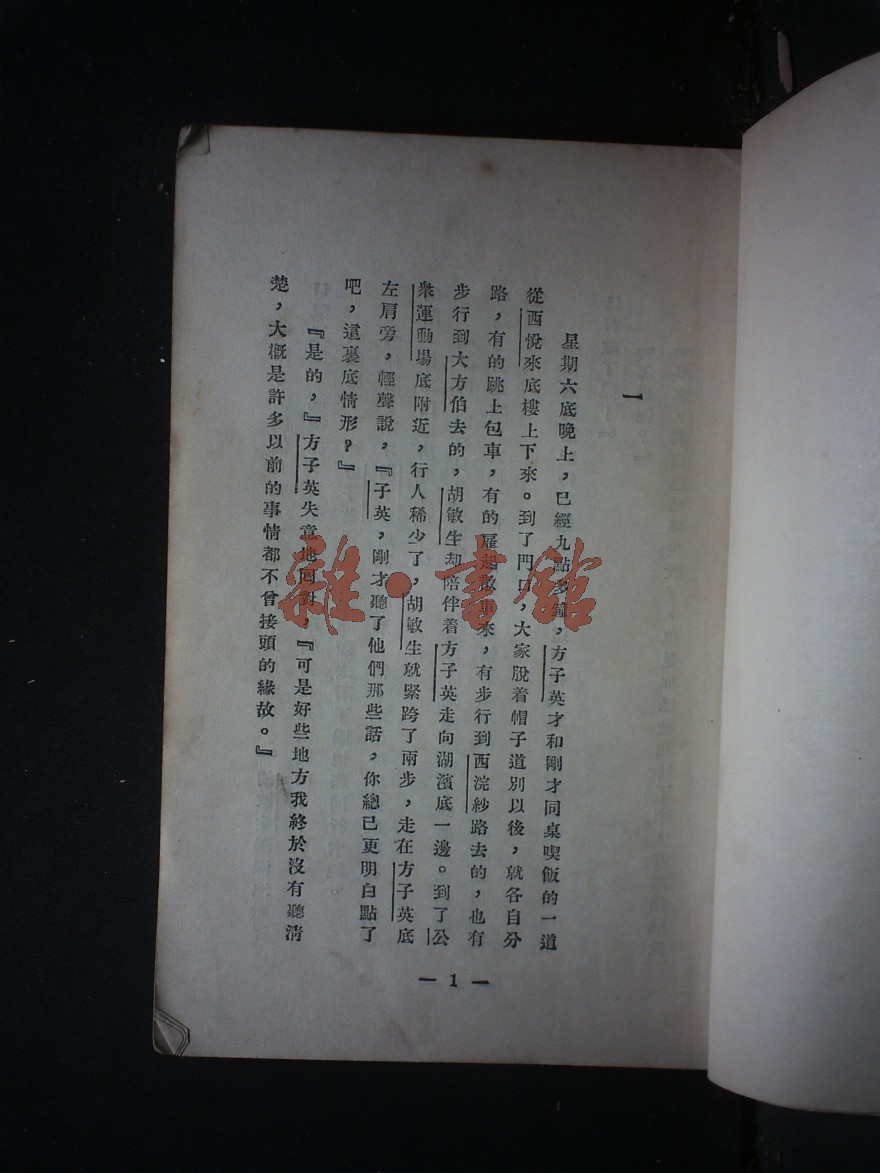 一
星期六底晚上，已經九點多鐘，方子英才和剛才同桌喫飯的一道
從西悅來底樓上下來。到了門口，大家脫着帽子道別以後，就各自分
路，有的跳上包車，有的雇起散車來，有步行到西浣紗路去的，也有
步行到大方伯去的，胡敏生却陪伴着方子英走向湖濱底一邊。到了公
衆運動場底附近，行人稀少了，胡敏生就緊跨了兩步，走在方子英底
左肩旁，輕聲說，『子英，剛才聽了他們那些話，你總已更明白點了
吧，這裏底情形？』
『是的，』方子英失意地回對，『可是好些地方我終於沒有聽清
楚，大概是許多以前的事情都不曾接頭的緣故。』
— 1 —
雜·書館